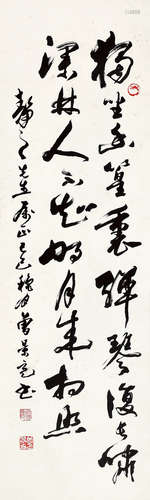 独坐幽篁里弹琴复长啸
深林人不知明月来相照
声之先生属正 乙巳秋月 曾景充书